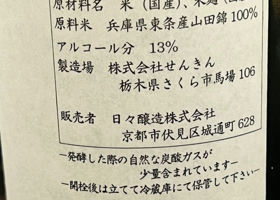 原材料名　米（国産）、米麹（国
原料米　兵庫県東条産山田錦100%
アルコール分　13%
製造場　株式会社せんきん
栃木県さくら市馬場106
販売者　日々醸造株式会社
京都市伏見区城通町628
―発酵した際の自然な炭酸ガスが
少量含まれています―
―開栓後は立てて冷蔵庫にて保管して下さい―